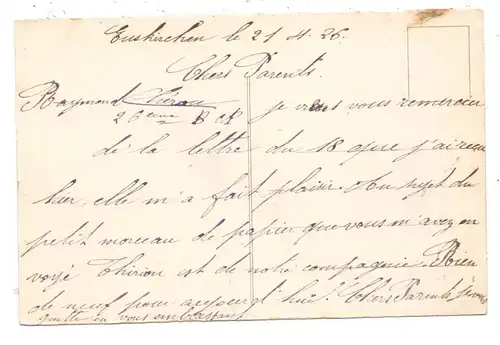 Euskirchen le 21 4. 26.
Chers Parents.
Raymond
26 ème B C P
je viens vous remercier
de la lettre du 18 que j'ai reçu
hier, elle m'a fait plaisir. Au sujet du
petit morceau de papier que vous m'avez en
voyé Thirion est de notre compagnie. Rien
de neuf pour aujourd'hui. Chers Parents je vous
quitte en vous embrassant